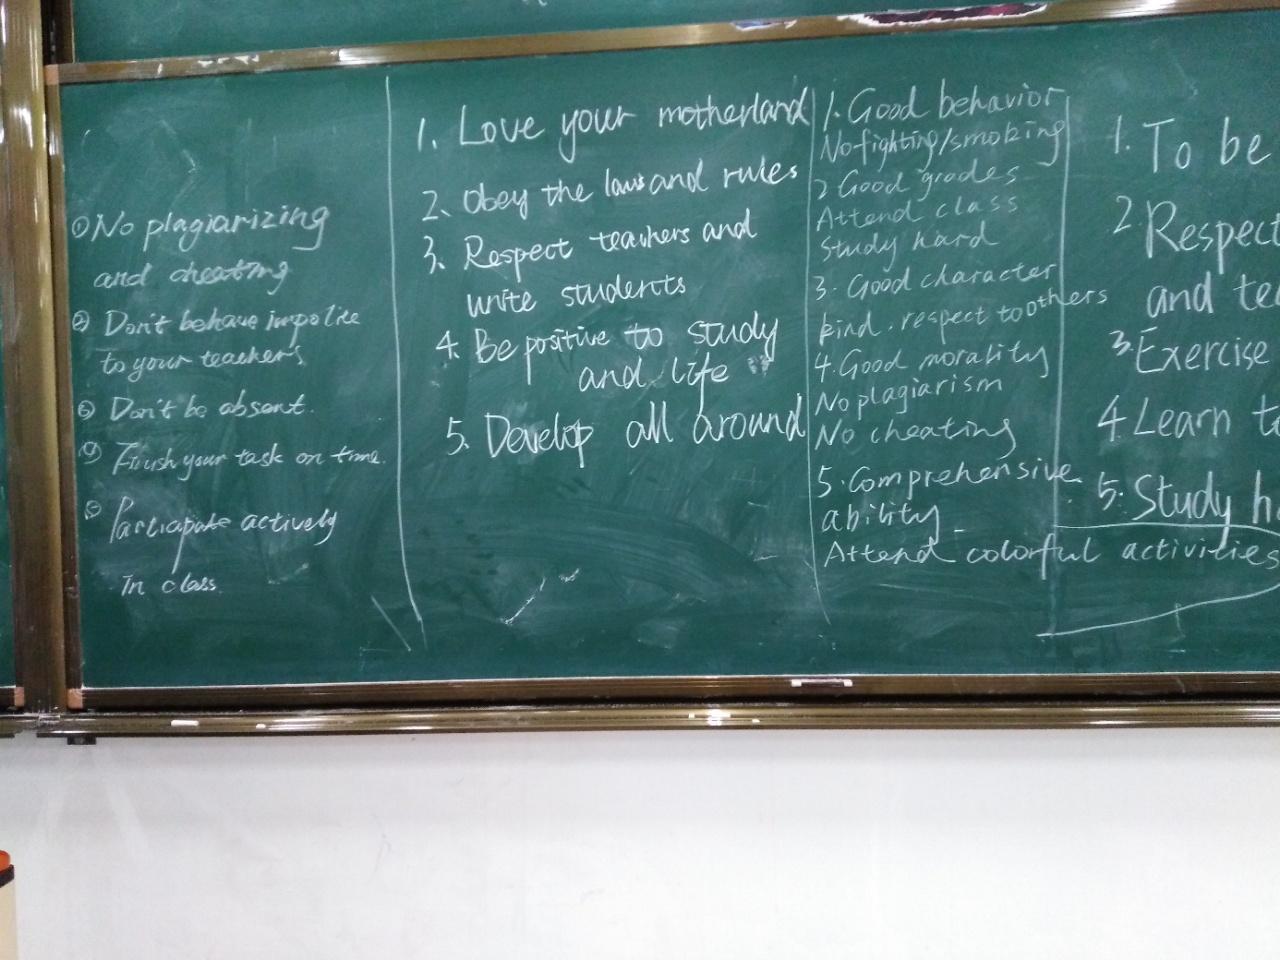 ① No plagiarizing
and cheating
② Don't behave impolite
to your teachers
③ Don't be absent.
④ Finish your task on time.
⑤ Participate actively
In class
1. Love your motherland
2. Obey the laws and rules
3. Respect teachers and
unite students
4. Be positive to study
and life
5. Develop all around
1. Good behavior
No fighting/smoking
2 Good grades
Attend class
Study hard
3. Good character
kind. respect to others
4. Good morality
No plagiarism
No cheating
5. Comprehensive
ability
Attend colorful activities
1. To be
2 Respect
and
3. Exercise
4 Learn
5. Study